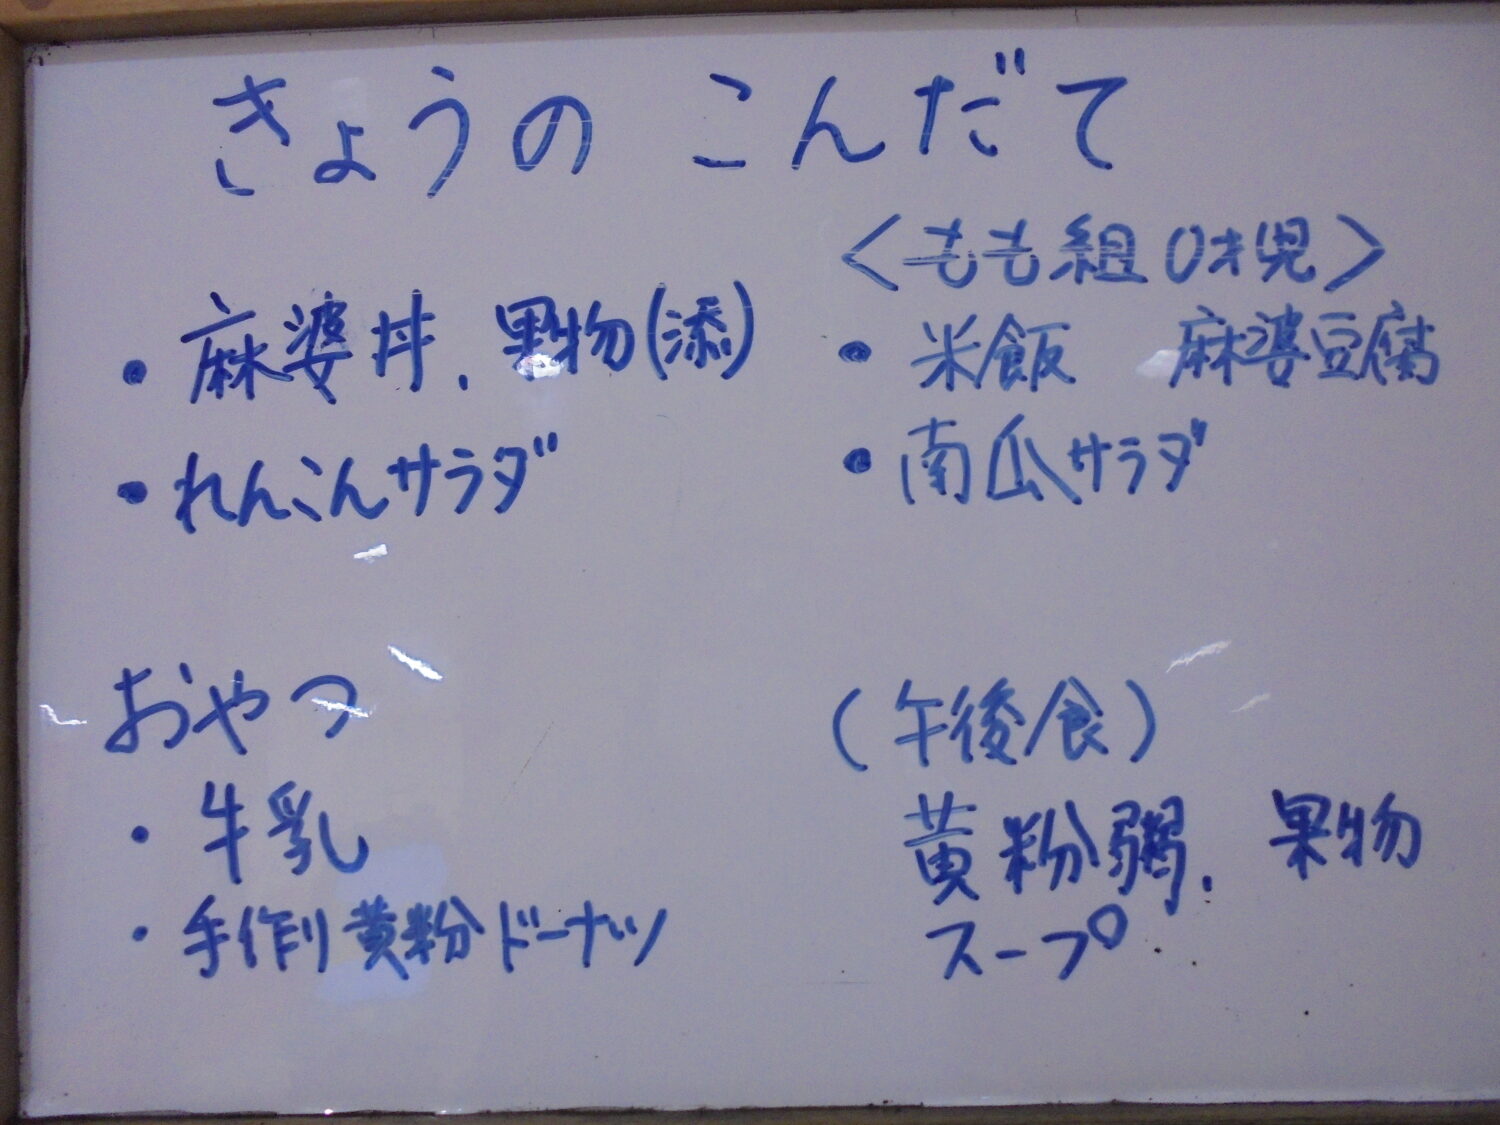 きょうの こんだて
・麻婆丼、果物(添)
・れんこんサラダ
おやつ
・牛乳
・手作り黄粉ドーナツ
<もも組 0才児>
・米飯 麻婆豆腐
・南瓜サラダ
(午後食)
黄粉粥、果物
スープ